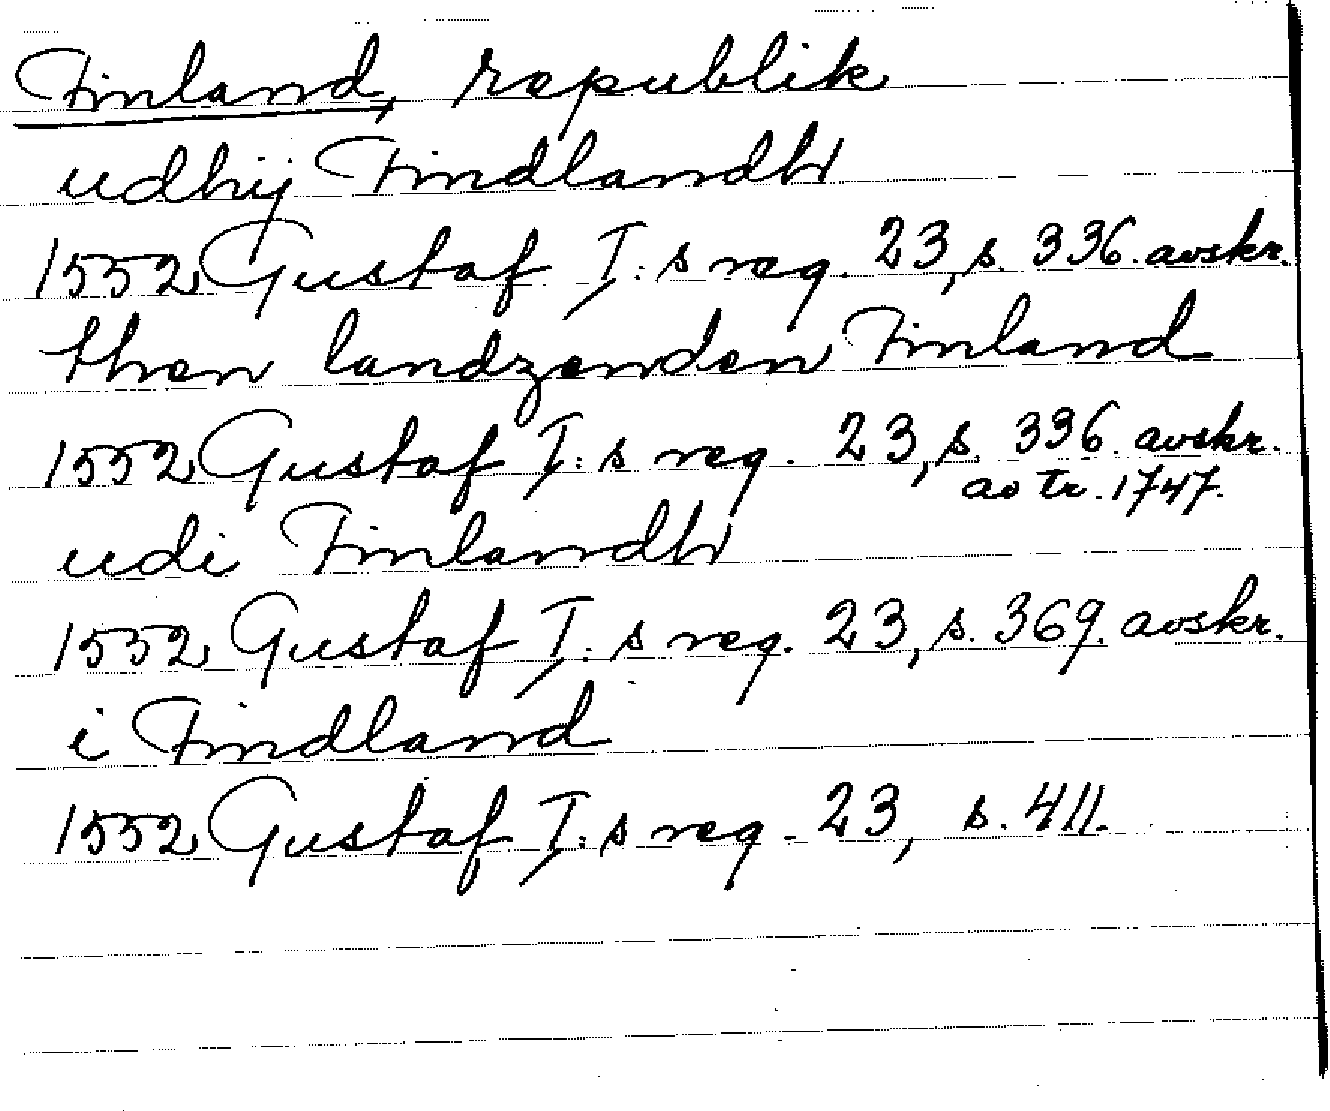 Finland, republik
udhij Findlandh
1552 Gustaf I:s reg. 23, s. 336. avskr.
then landzenden Finland
1552 Gustaf I:s reg. 23, s. 336. avskr.
av tr. 1747.
udi Finlandh
1552 Gustaf I:s reg. 23, s. 369. avskr.
i Findland
1552 Gustaf I:s reg. 23, s. 411.